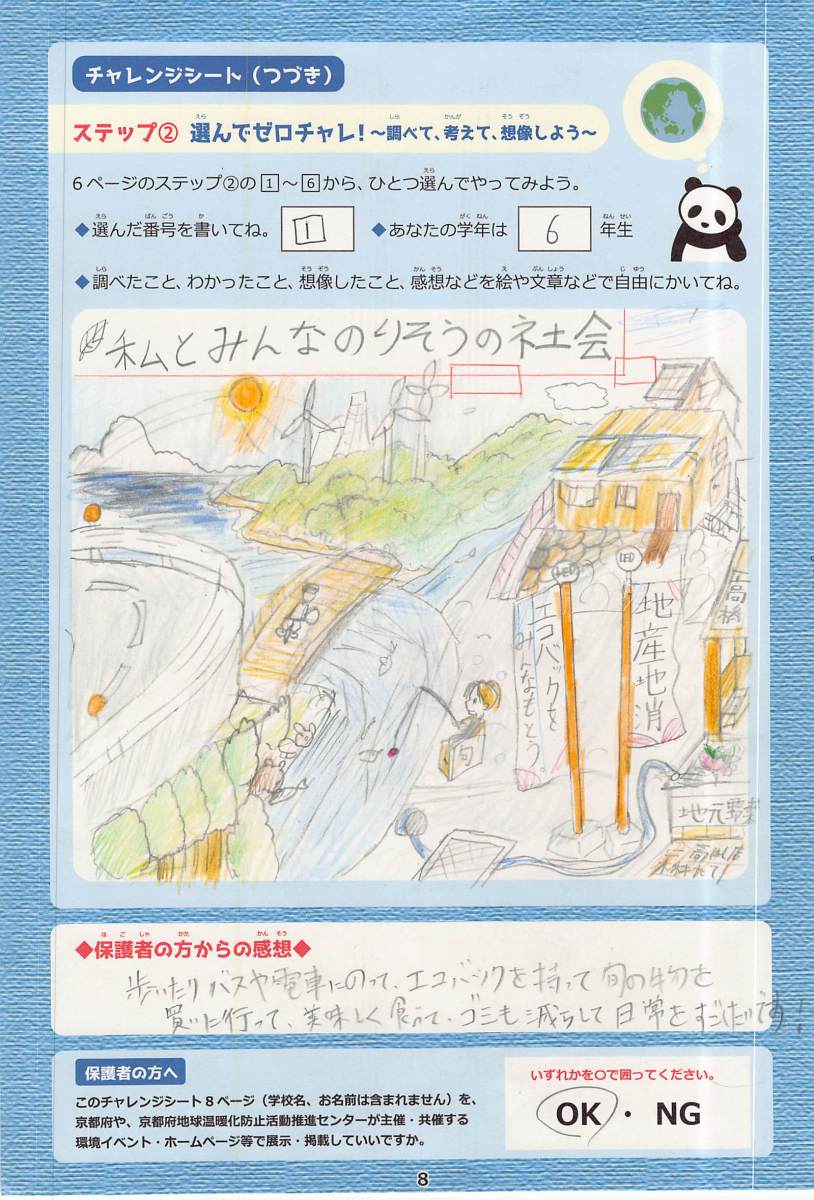 チャレンジシート（つづき）
ステップ② 選んでゼロチャレ！～調べて、考えて、想像しよう～
6ページのステップ②の1～6から、ひとつ選んでやってみよう。
◆選んだ番号を書いてね。 1 ◆あなたの学年は 6 年生
◆調べたこと、わかったこと、想像したこと、感想などを絵や文章などで自由にかいてね。
私とみんなのりそうの社会
LED
LED
地産地消
エコバックを
みんなもとう。
高橋
旬
地元野菜
◆保護者の方からの感想◆
歩いたりバスや電車にのって、エコバックを持って旬の物を
買いに行って、美味しく食べて、ゴミも減らして日常をすごしたいです！
保護者の方へ
このチャレンジシート8ページ（学校名、お名前は含まれません）を、
京都府や、京都府地球温暖化防止活動推進センターが主催・共催する
環境イベント・ホームページ等で展示・掲載していいですか。
いずれかを○で囲ってください。
OK・NG
8